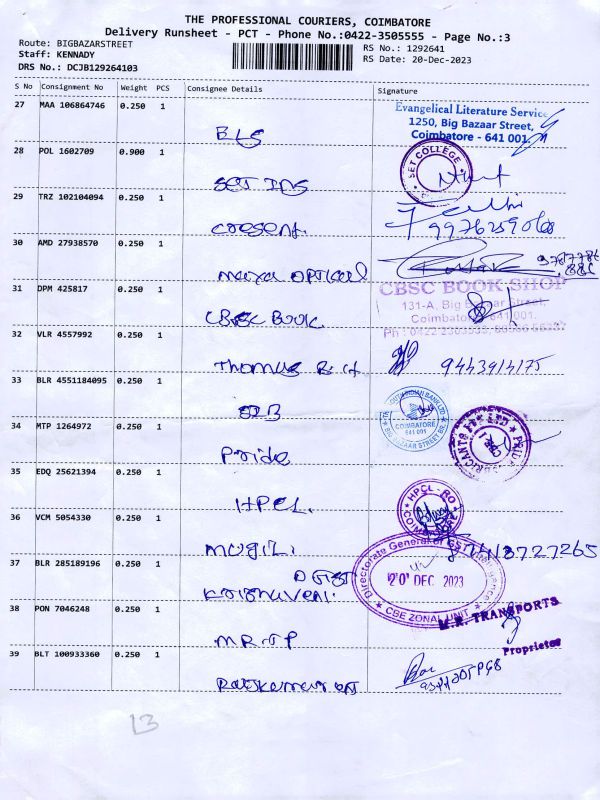 THE PROFESSIONAL COURIERS, COIMBATORE
Delivery Runsheet - PCT - Phone No.:0422-3505555 - Page No.:3
Route: BIGBAZARSTREET
RS No.: 1292641
Staff: KENNADY
RS Date: 20-Dec-2023
DRS No.: DCJB129264103
S No Consignment No Weight PCS Consignee Details Signature
27 MAA 106864746 0.250 1
Evangelical Literature Service
1250, Big Bazaar Street,
Coimbatore - 641 001.
BLS
28 POL 1602709 0.900 1
SET COLLEGE
SET INS
29 TRZ 102104094 0.250 1
Cresent.
9976259068
30 AMD 27938570 0.250 1
Optical
31 DPM 425817 0.250 1
CBSC BOOK SHOP
131-A, Big Bazaar Street,
Coimbatore 641 001.
CBSC Book
32 VLR 4557992 0.250 1
Thomas B.
9443914175
33 BLR 4551184095 0.250 1
SIB
COIMBATORE
641 001
BIG BAZAAR STREET BR.
34 MTP 1264972 0.250 1
Pride
35 EDQ 25621394 0.250 1
HPCL - RO
COIMBATORE
HPCL.
36 VCM 5054330 0.250 1
Mugil.
7413727265
37 BLR 285189196 0.250 1
Directorate General of GST
20 DEC 2023
CBE ZONAL UNIT
DGGST
Krishnaveni.
38 PON 7046248 0.250 1
M.R. TRANSPORTS
Proprietor
MR-TP
39 BLT 100933360 0.250 1
Rajkumar
13